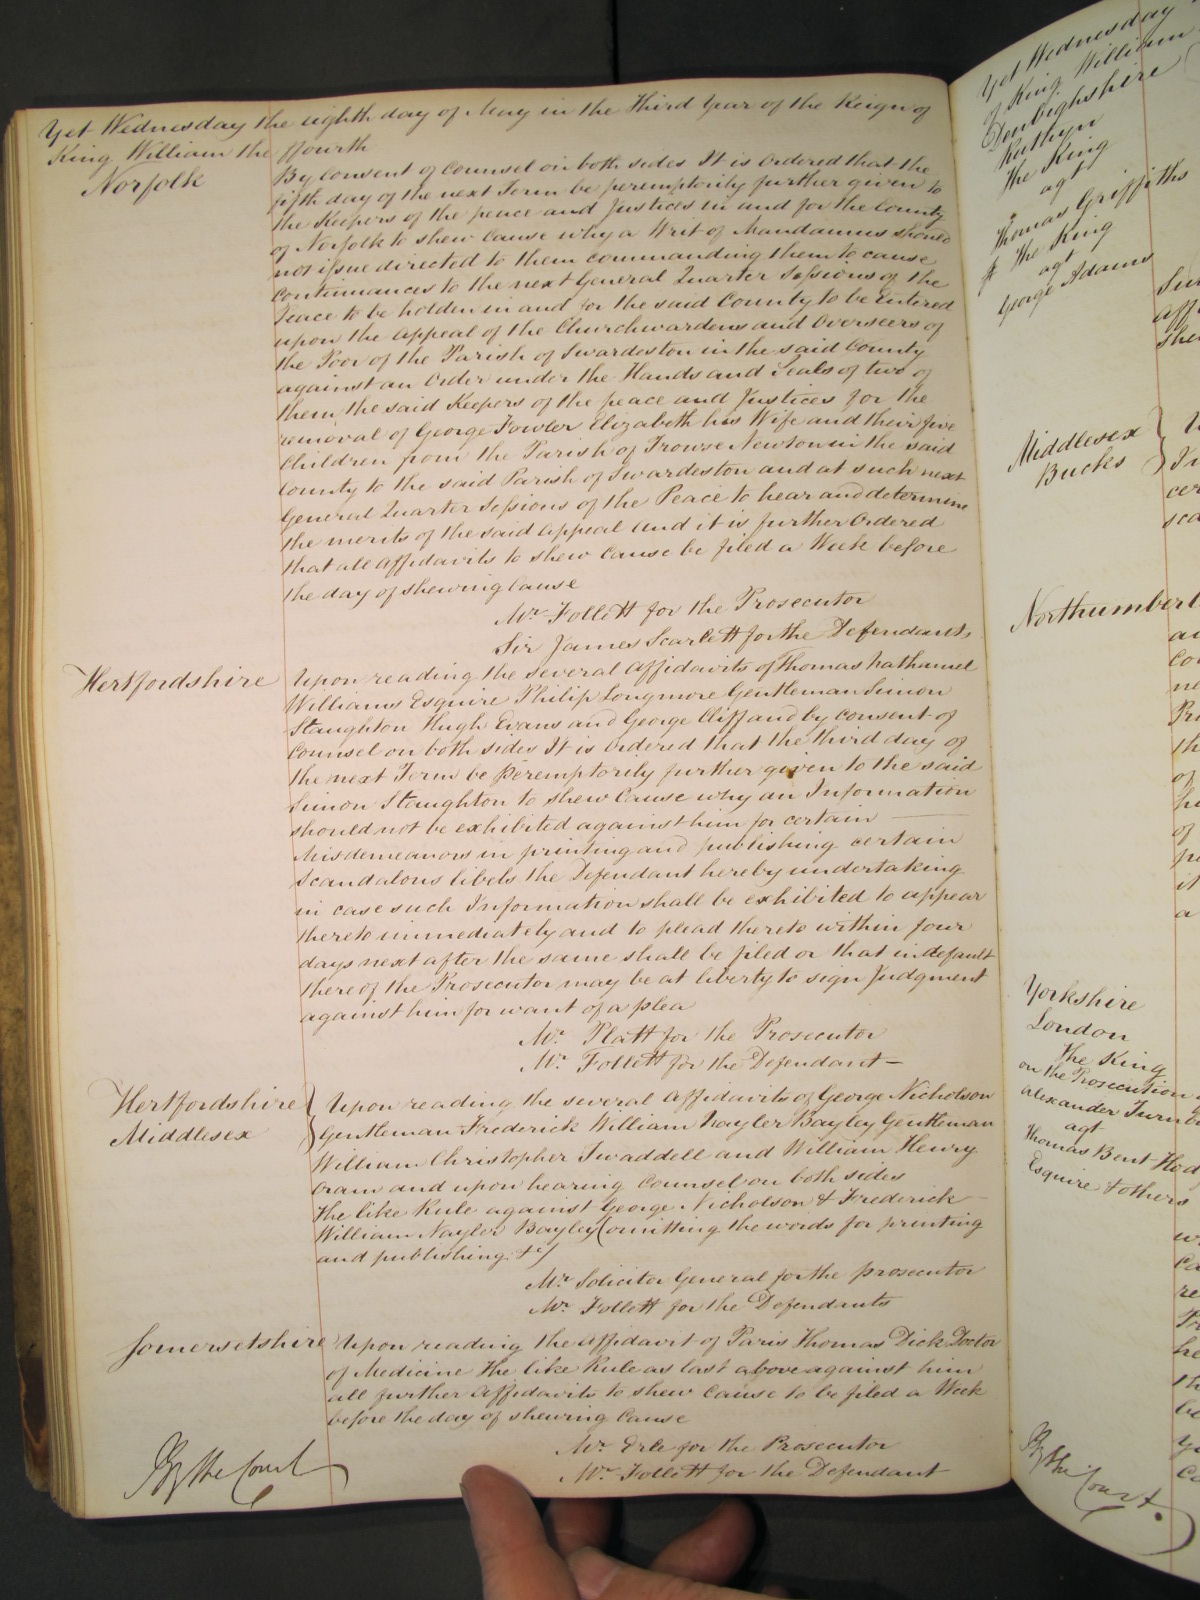 Yet Wednesday the eighth day of May in the Third Year of the Reign of
King William the ffourth
Norfolk
By consent of Counsel on both sides It is Ordered that the
fifth day of the next Term be peremptorily further given to
the Keepers of the peace and Justices in and for the County
of Norfolk to shew Cause why a Writ of Mandamus should
not issue directed to them commanding them to cause
Continuances to the next General Quarter Sessions of the
Peace to be holden in and for the said County to be Entered
upon the appeal of the Churchwardens and Overseers of
the Poor of the Parish of Swardeston in the said County
against an Order under the Hands and Seals of two of
them the said Keepers of the peace and Justices for the
removal of George Fowler Elizabeth his Wife and their five
Children from the Parish of Trowse Newton in the said
County to the said Parish of Swardeston and at such next
General Quarter Sessions of the Peace to hear and determine
the merits of the said appeal and it is further Ordered
that all Affidavits to shew Cause be filed a Week before
the day of shewing Cause
Mr. Follett for the Prosecutor
Sir James Scarlett for the Defendants
Hertfordshire
Upon reading the several Affidavits of Thomas Nathaniel
Williams Esquire Philip Longmore Gentleman Simon
Staughton Hugh Evans and George Cliff and by consent of
Counsel on both sides It is ordered that the third day of
the next Term be peremptorily further given to the said
Simon Staughton to shew Cause why an Information
should not be exhibited against him for certain
Misdemeanors in printing and publishing certain
Scandalous libels the Defendant hereby undertaking
in case such Information shall be exhibited to appear
thereto immediately and to plead thereto within four
days next after the same shall be filed or that in default
thereof the Prosecutor may be at liberty to sign Judgment
against him for want of a plea
Mr. Platt for the Prosecutor
Mr. Follett for the Defendant
Hertfordshire
Middlesex
Upon reading the several Affidavits of George Nicholson
Gentleman Frederick William Nayler Bayley Gentleman
William Christopher Twaddell and William Henry
Oram and upon hearing Counsel on both sides
the like Rule against George Nicholson & Frederick
William Nayler Bayley (omitting the words for printing
and publishing &c)
Mr. Solicitor General for the prosecutor
Mr. Follett for the Defendants
Somersetshire
Upon reading the affidavit of Paris Thomas Dick Doctor
of Medicine the like Rule as last above against him
all further affidavits to shew Cause to be filed a Week
before the day of shewing Cause
Mr. Erle for the Prosecutor
Mr. Follett for the Defendant
By the Court
Yet Wednesday
of King William
Denbighshire
Ruthyn
the King
agt
Thomas Griffiths
the King
agt
George Adams
Middlesex
Bucks
Northumberl
Yorkshire
London
the King
on the Prosecution
Alexander
agt
Thomas Bent
Esquire & others
By the Court.